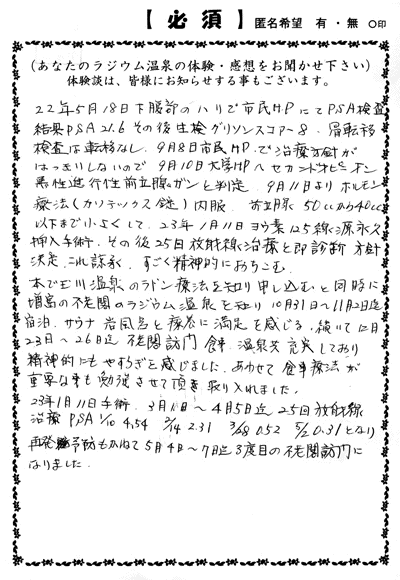 【必須】 匿名希望 有・無 ○印
(あなたのラジウム温泉の体験・感想をお聞かせ下さい)
体験談は、皆様にお知らせする事もございます。
22年5月18日下腹部のハリで市民HPにてPSA検査
結果PSA21.6 その後生検グリソンスコアー8. 骨転移
検査は転移なし. 9月8日市民HP.で治療方針が
はっきりしないので 9月10日大学HPへセカンドオピニオン
悪性進行性前立腺ガンと判定. 9月11日よりホルモン
療法(カソデックス錠)内服. 前立腺 50ccから40cc
以下まで小さくして. 23年1月11日ヨウ素125線源永久
挿入手術. その後25日放射線治療と即診断 方針
決定. これ以来. すごく精神的におちこむ.
本で玉川温泉のラドン療法を知り申し込むと同時に
増富の不老閣のラジウム温泉を知り 10月31日〜11月2日迄
宿泊. サウナ 岩風呂と療養に満足を感じる. 続いて12月
23日〜26日迄 不老閣訪問 食事. 温泉共充実しており
精神的にもやすらぎを感じました. あわせて食事療法が
重要な事も勉強させて頂き取り入れました.
23年1月11日手術. 3月1日〜4月5日迄 25回放射線
治療 PSA 1/10 4.54 2/14 2.31 3/28 0.52 5/2 0.31となり
再発予防もかねて5月4日〜7日迄3度目の不老閣訪問に
なりました.